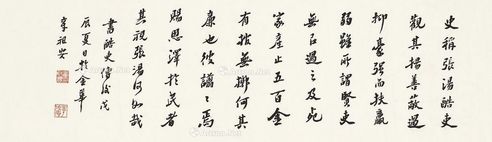 史称張湯酷吏
觀其揚善蔽過
抑豪强而扶羸
弱雖所謂賢吏
無以過之及死
家產止五百金
有棺無槨何其
廉也彼譊譊焉
賜恩澤於民者
其視張湯何如哉
書酷吏傳後戊
辰夏日於金華
章祖安